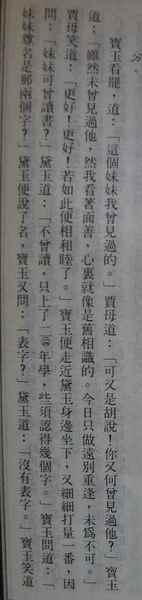 寶玉看罷,道:「這個妹妹我曾見過的。」賈母道:「可又是胡說!你又何曾見過他?」寶玉
道:「雖然未曾見過他,然我看著面善,心裏就像是舊相識的。今日只做遠別重逢,未爲不可。」
賈母笑道:「更好!更好!若如此便相和睦了。」寶玉便走近黛玉身邊坐下,又細細打量一番,因
問:「妹妹可曾讀書?」黛玉道:「不曾讀,只上了一年學,些須認得幾個字。」寶玉問道:「
妹妹尊名是那兩個字?」黛玉便說了名,寶玉又問:「表字?」黛玉道:「沒有表字。」寶玉笑道